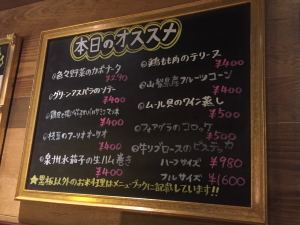 本日のオススメ
色々野菜のカポナータ
¥290
グリーンアスパラのソテー
¥400
¥400
枝豆のアーリオオーリオ
¥400
泉州水茄子の生ハム巻き
¥400
鶏もも肉のテリーヌ
¥400
山梨県産フルーツコーン
¥400
ムール貝のワイン蒸し
¥500
フォアグラのコロッケ
¥500
牛リブロースのビステッカ
ハーフサイズ ¥980
フルサイズ ¥1600
★黒板以外のお料理はメニューブックに記載しています!!